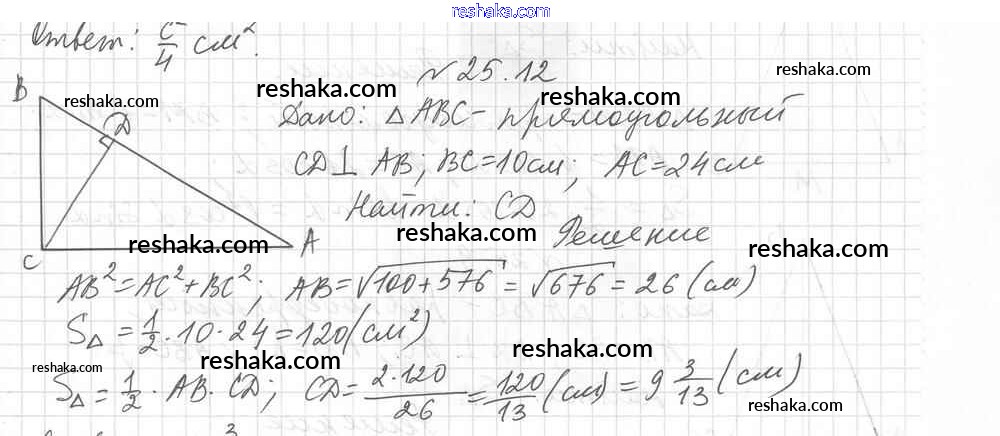 reshaka.com
Ответ: c²/4 см².
№ 25.12
B
reshaka.com
reshaka.com
reshaka.com
D
Дано: △ABC - прямоугольный
CD⊥AB; BC=10см; AC=24см
Найти: CD
reshaka.com
reshaka.com
reshaka.com
A
Решение
C
AB²=AC²+BC²; AB=√100+576=√676=26(см)
S△=1/2·10·24=120(см²)
reshaka.com
reshaka.com
reshaka.com
S△=1/2·AB·CD; CD=2·120/26=120/13(см)=9 3/13(см)
reshaka.com